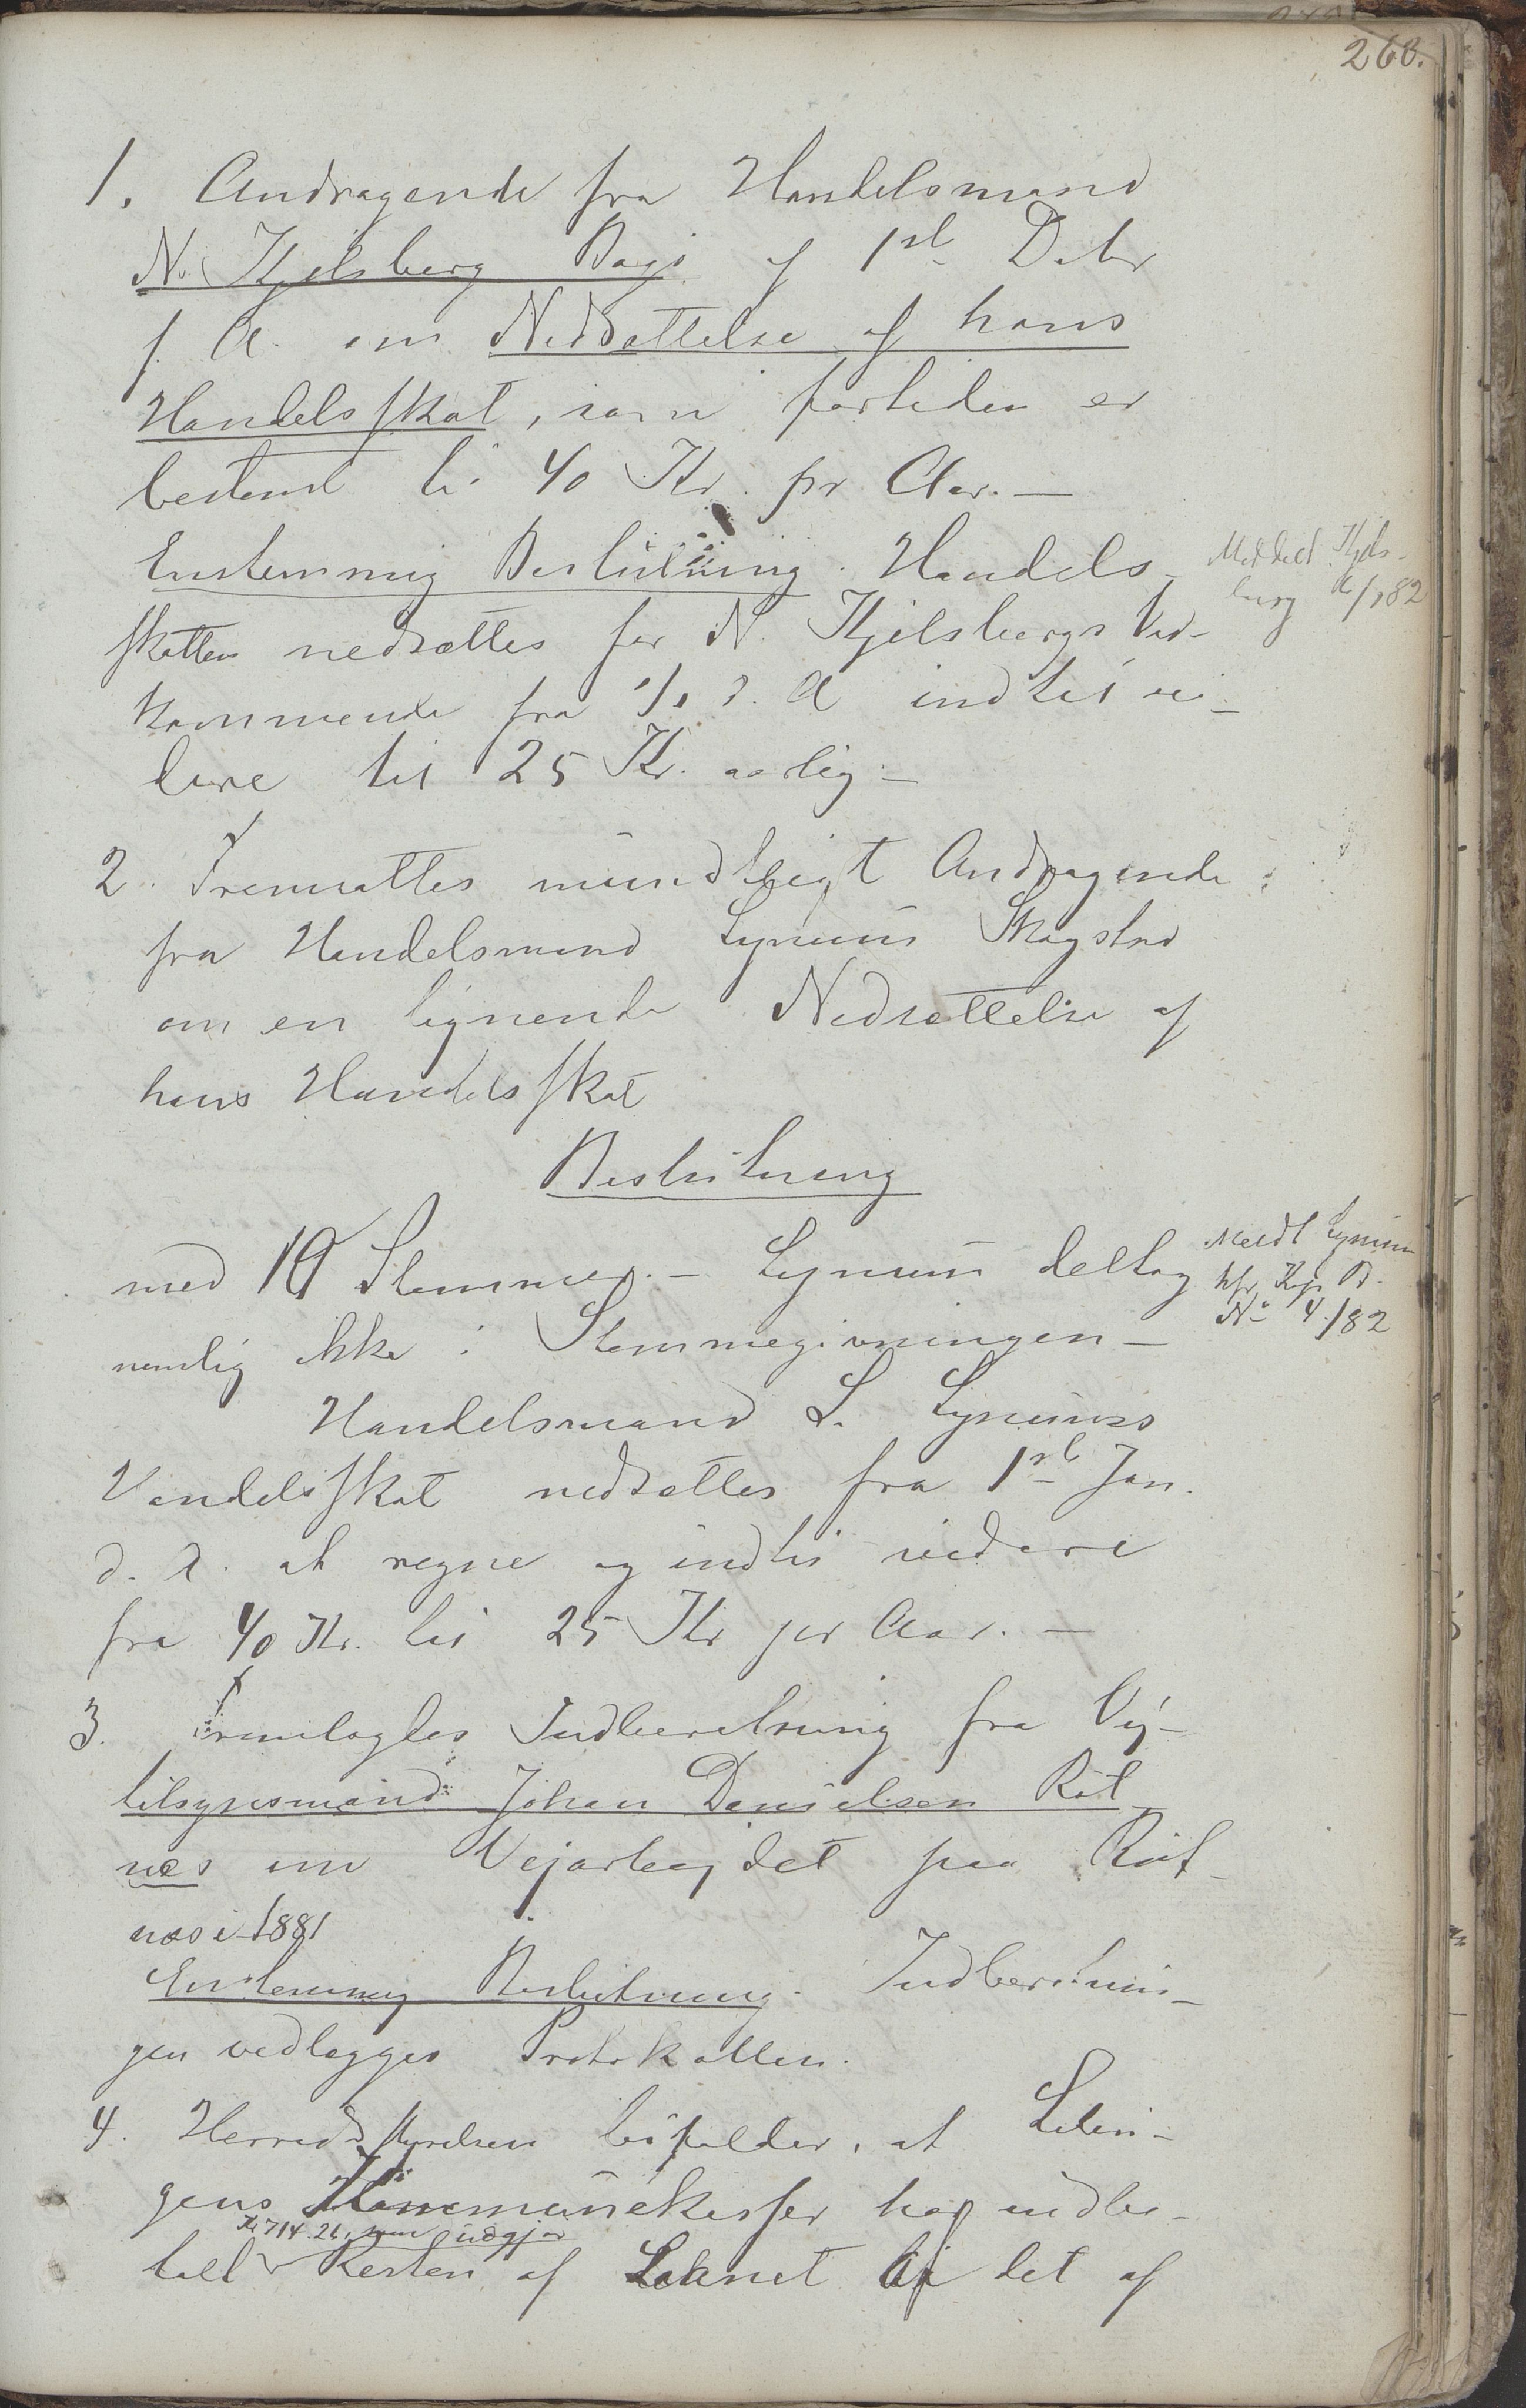 268.
1. Andragende fra Handelsmand
N. Kjelsberg Bogö af 1ste Debr
f. A. om Nedsættelse af hans
Handelsskat, som fortiden er
bestemt til 40 Kr. pr Aar. —
Enstemmig Beslutning. Handels-
skatten nedsættes for N. Kjelsbergs Ved-
kommende fra 1/1 d. A indtil vi-
dere til 25 Kr. aarlig. —
Meddelt Kjels-
berg 6/1 82
2. Fremsattes mundtligt Andragende
fra Handelsmand Lynum Skogstad
om en lignende Nedsættelse af
hans Handelsskat
Beslutning
med 10 Stemmer. — Lynum deltog
nemlig ikke i Stemmegivningen —
Meddt Lynum
Kop. B.
No 4/82
Handelsmand L. Lynums
Handelsskat nedsættes fra 1ste Jan.
d. A. at regne og indtil videre
fra 40 Kr. til 25 Kr pr Aar. —
3. Fremlagtes Indberetning fra Vej-
tilsynsmand Johan Danielsen Röt-
næs om Vejarbejdet paa Röt-
næs i 1881
Enstemmig Beslutning. Indberetnin-
gen vedlægges Protokollen.
4. Herredsstyrelsen bifalder, at Letin-
gens Kommunekasser har indbe-
Kr 714.26, som udgjør
talt Resten af Laanet til det af